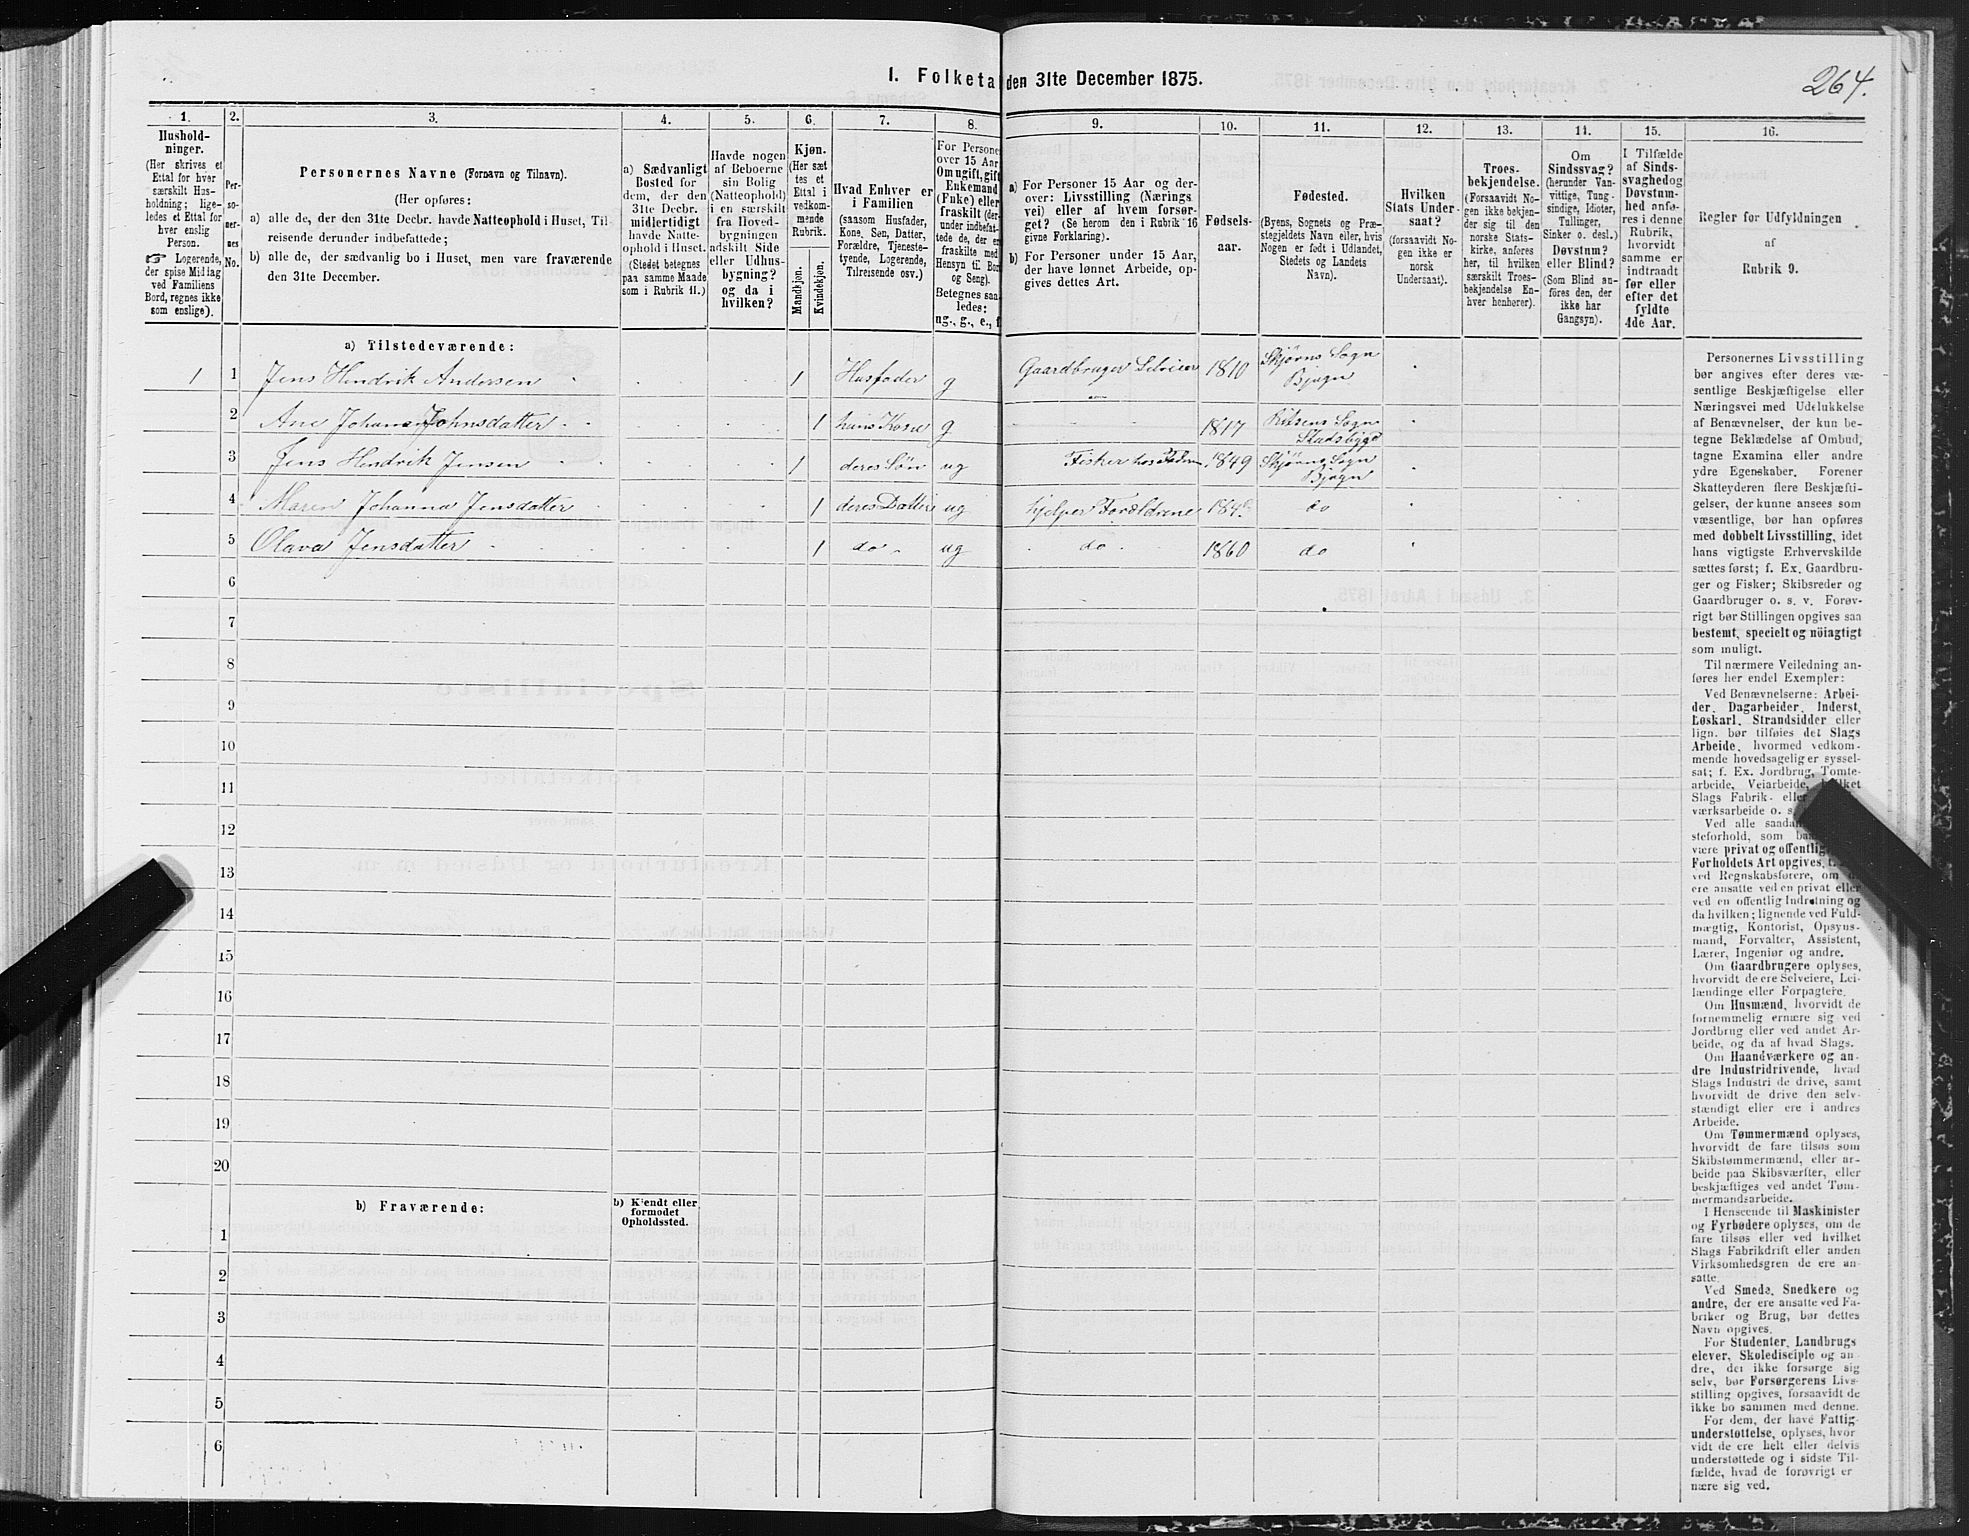 264.
I. Folketal den 31te December 1875.
1. 2. 3. 4. 5. 6. 7. 8. 9. 10. 11. 12. 13. 14. 15. 16.
Hushold-
ninger.
(Her skrives et
Ettal for hver
særskilt Hus-
holdning; lige-
ledes et Ettal for
hver enslig
Person.
☞ Logerende,
der spise Middag
ved Familiens
Bord, regnes ikke
som enslige).
Per-
so-
ner-
nes
No.
Personernes Navne (Fornavn og Tilnavn).
(Her opføres:
a) alle de, der den 31te Decbr. havde Natteophold i Huset, Til-
reisende derunder indbefattede;
b) alle de, der sædvanlig bo i Huset, men vare fraværende
den 31te December.
a) Sædvanligt
Bosted for
dem, der den
31te Decbr.
midlertidigt
havde Natte-
ophold i Huset.
(Stedet betegnes
paa samme Maade
som i Rubrik 11.)
Havde nogen
af Beboerne
sin Bolig
(Natteophold)
i en særskilt
fra Hoved-
bygningen
adskilt Side
eller Udhus-
bygning?
og da i
hvilken?
Kjøn.
(Her sæt
tes et
Ettal i
vedkom-
mende
Rubrik.
Mandkjøn.
Kvindekjøn.
Hvad Enhver er
i Familien
(saasom Husfader,
Kone, Søn, Datter,
Forældre, Tjeneste-
tyende, Logerende,
Tilreisende osv.)
For Persone
over 15 Aar
Om ugift, gift
Enkemand
(Enke) eller
fraskilt (der-
under indbefat-
tede de, der er
fraskilte med
Hensyn til Bor
og Seng).
Betegnes saa-
ledes:
ug., g., e., f
a) For Personer 15 Aar og der-
over: Livsstilling (Nærings
vei) eller af hvem forsør-
get? (Se herom den i Rubrik 16
givne Forklaring).
b) For Personer under 15 Aar,
der have lønnet Arbeide, op-
gives dettes Art.
Fødsels-
aar.
Fødested.
(Byens, Sognets og Præ-
stegjeldets Navn eller, hvis
Nogen er født i Udlandet,
Stedets og Landets
Navn).
Hvilken
Stats Under-
saat?
(forsaavidt No-
gen ikke er
norsk
Undersaat).
Troes-
bekjendelse.
(Forsaavidt No-
gen ikke bekjen-
der sig til den
norske Stats-
kirke, anføres
her, til hvilken
særskilt Troes-
bekjendelse En-
hver henhører).
Om
Sindssvag?
(herunder Van-
vittige, Tung-
sindige, Idioter,
Tullinger,
Sinker o. desl.)
Døvstum?
eller Blind?
(Som Blind an-
føres den, der
ikke har
Gangsyn).
I Tilfælde
af Sinds-
svaghed og
Døvstum-
hed anfø-
res i denne
Rubrik,
hvorvidt
samme er
indtraadt
før eller
efter det
fyldte
4de Aar.
Regler for Udfyldningen
af
Rubrik 9.
a) Tilstedeværende:
1 1 Jens Hendrik Andersen 1 Husfader g Gaardbruger Selveier 1810 Skjørns Sogn
Bjugn
2 Ane Johanna Johnsdatter 1 hans Kone g 1817 Ritsens Sogn
Stadsbygd
3 Jens Hendrik Jensen 1 deres Søn ug Fisker hos 1849 Skjørns Sogn
Bjugn
4 Maren Johanna Jensdatter 1 deres Datter ug hjelper Forældrene do
5 Olava Jensdatter 1 do ug do 1860 do
6
7
8
9
10
11
12
13
14
15
16
17
18
19
20
b) Fraværende:
b) Kjendt eller
formodet
Opholdssted.
1
2
3
4
5
6
Personernes Livsstilling
bør angives efter deres væ-
sentlige Beskjæftigelse eller
Næringsvei med Udelukkelse
af Benævnelser, der kun be-
tegne Beklædelse af Ombud,
tagne Examina eller andre
ydre Egenskaber. Forener
Skatteyderen flere Beskjæfti-
gelser, der kunne ansees som
væsentlige, bør han opføres
med dobbelt Livsstilling, idet
hans vigtigste Erhvervskilde
sættes først; f. Ex. Gaardbru-
ger og Fisker; Skibsreder og
Gaardbruger o. s. v. Forøv-
rigt bør Stillingen opgives saa
bestemt, specielt og nöiagtigt
som muligt.
Til nærmere Veiledning an-
føres her endel Exempler:
Ved Benævnelserne: Arbei-
der, Dagarbeider, Inderst,
Løskarl, Strandsidder eller
lign. bør tilføies det Slags
Arbeide, hvormed vedkom-
mende hovedsagelig er syssel-
sat; f. Ex. Jordbrug, Tomte-
arbeide, Veiarbeide, hvilket
Slags Fabrik- eller
værksarbeide o. s.
Ved alle saadan
steforhold, som
være privat og offentlig
Forholdets Art opgives,
ved Regnskabsførere, om
ere ansatte ved en privat eller
ved en offentlig Indretning og
da hvilken; lignende ved Fuld-
mægtig, Kontorist, Opsyns-
mand, Forvalter, Assistent,
Lærer, Ingeniør og andre.
Om Gaardbrugere oplyses,
hvorvidt de ere Selveiere, Lei-
lændinge eller Forpagtere.
Om Husmænd, hvorvidt de
fornemmelig ernære sig ved
Jordbrug eller ved andet Ar-
beide, og da af hvad Slags.
Om Haandværkere og an-
dre Industridrivende, hvad
Slags Industri de drive, samt
hvorvidt de drive den selv-
stændigt eller ere i andres
Arbeide.
Om Tømmermænd oplyses,
hvorvidt de fare tilsøs som
Skibstømmermænd, eller ar-
beide paa Skibsværfter, eller
beskjæftiges ved andet Tøm-
mermandsarbeide.
I Henseende til Maskinister
og Fyrbødere oplyses, om de
fare tilsøs eller ved hvilket
Slags Fabrikdrift eller anden
Virksomhedsgren de ere an-
satte.
Ved Smede, Snedkere og
andre, der ere ansatte ved Fa-
briker og Brug, bør dettes
Navn opgives.
For Studenter, Landbrugs
elever, Skoledisciple og an-
dre, der ikke forsørge sig
selv, bør Forsørgerens Livs-
stilling opgives, forsaavidt de
ikke bo sammen med denne.
For dem, der have Fattig-
understøttelse, oplyses, hvor
vidt de ere helt eller delvis
understøttede og i sidste Til-
fælde, hvad de forøvrigt er
nære sig ved.